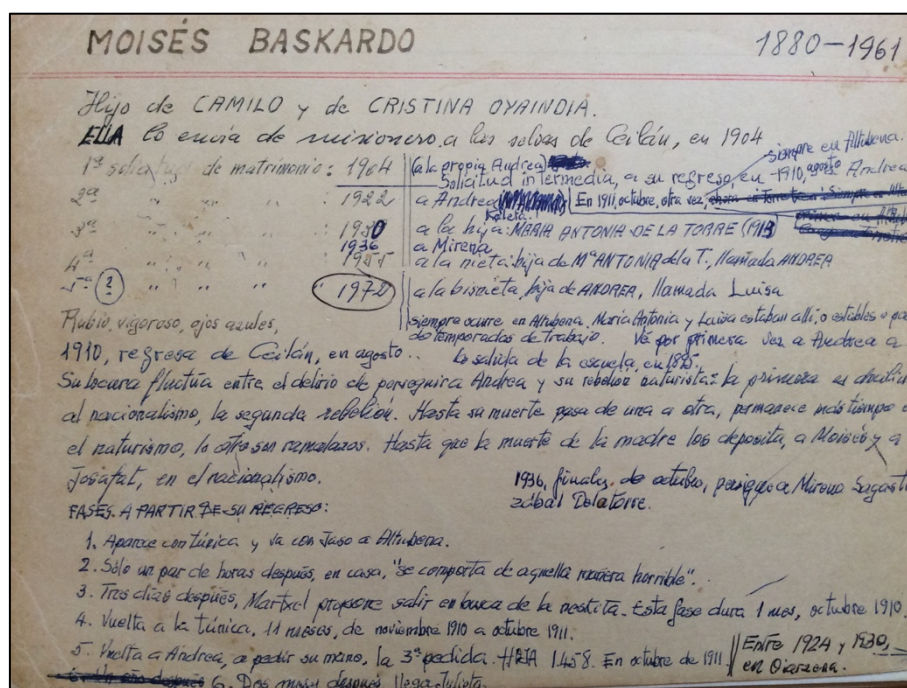 MOISÉS BASKARDO 1880-1961
Hijo de CAMILO y de CRISTINA OYAINDIA.
ELLA lo envía de misionero a las selvas de Ceilán, en 1904
siempre en Altubena.
1ª solicitud de matrimonio: 1904 (a la propia Andrea)
Solicitud intermedia, a su regreso, en 1910, agosto Andrea
2ª " " " 1922 a Andrea En 1911, octubre, otra vez,
3ª " " " 1930 a la hija: MARIA ANTONIA DE LA TORRE (1913
1936 a Mirena
4ª " " " 1955 a la nieta, hija de Mª ANTONIA de la T., llamada ANDREA
5ª (2) " " " 1972 a la bisnieta, hija de ANDREA, llamada Luisa
Rubio, vigoroso, ojos azules,
siempre ocurre en Altubena. María Antonia y Luisa estaban allí, o estables o
do temporadas de trabajo. Ve por primera vez a Andrea a
1910, regresa de Ceilán, en agosto...
la salida de la escuela, en 1895.
Su locura fluctúa entre el delirio de perseguir a Andrea y su rebelión naturista: la primera es
al nacionalismo, la segunda rebelión. Hasta su muerte pasa de una a otra, permanece más tiempo
el naturismo, lo otro son ramalazos. Hasta que la muerte de la madre los deposita, a Moisés y a
Josafat, en el nacionalismo.
1936, finales de octubre, persigue a Mirena
FASES A PARTIR DE SU REGRESO:
1. Aparece con túnica y va con Jaso a Altubena.
2. Sólo un par de horas después, en casa, "se comporta de aquella manera horrible".
3. Tres días después, Martxel propone salir en busca de la nestita. Esta fase dura 1 mes, octubre 1910.
4. Vuelta a la túnica, 11 meses, de noviembre 1910 a octubre 1911.
5. Vuelta a Andrea, a pedir su mano, la 3ª pedida. HTA 1458. En octubre de 1911.
Entre 1924 y 1930,
en Oiarzena.
6. Dos meses después, llega Julieta.